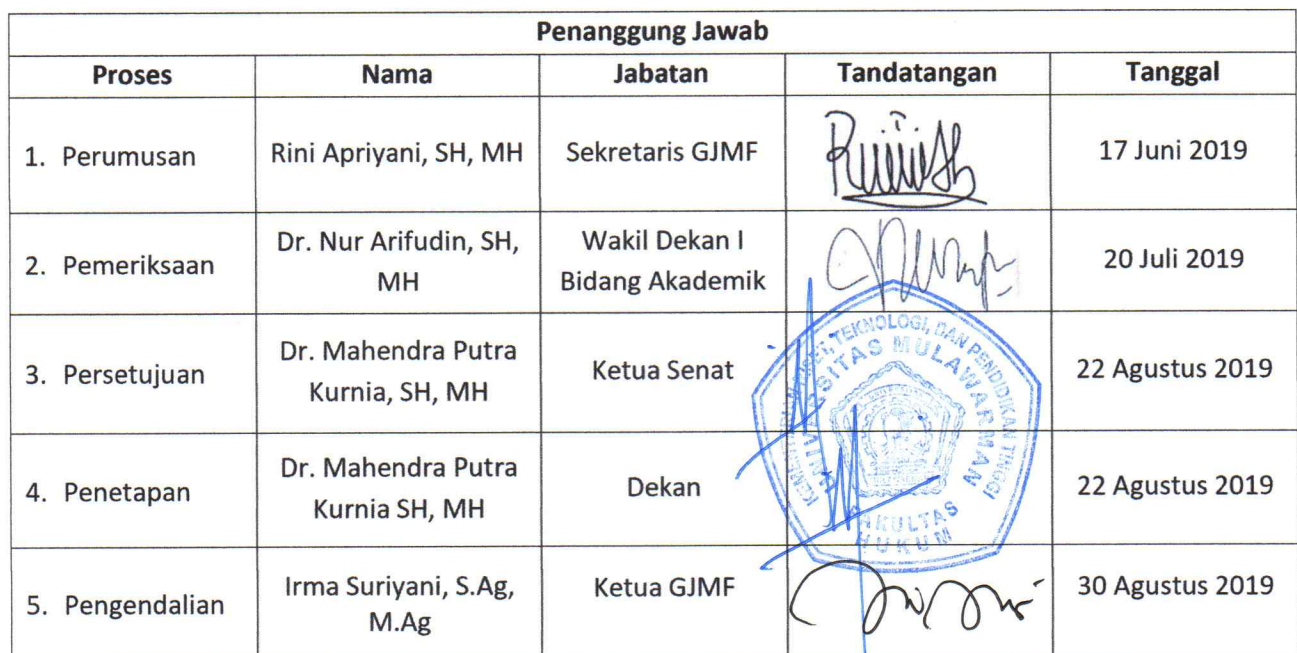 Penanggung Jawab
Proses Nama Jabatan Tandatangan Tanggal
1. Perumusan Rini Apriyani, SH, MH Sekretaris GJMF 17 Juni 2019
2. Pemeriksaan Dr. Nur Arifudin, SH,
MH Wakil Dekan I
Bidang Akademik 20 Juli 2019
3. Persetujuan Dr. Mahendra Putra
Kurnia, SH, MH Ketua Senat 22 Agustus 2019
4. Penetapan Dr. Mahendra Putra
Kurnia SH, MH Dekan 22 Agustus 2019
5. Pengendalian Irma Suriyani, S.Ag,
M.Ag Ketua GJMF 30 Agustus 2019
TEKNOLOGI, DAN PENDIDIKAN TINGGI
UNIVERSITAS MULAWARMAN
FAKULTAS
HUKUM